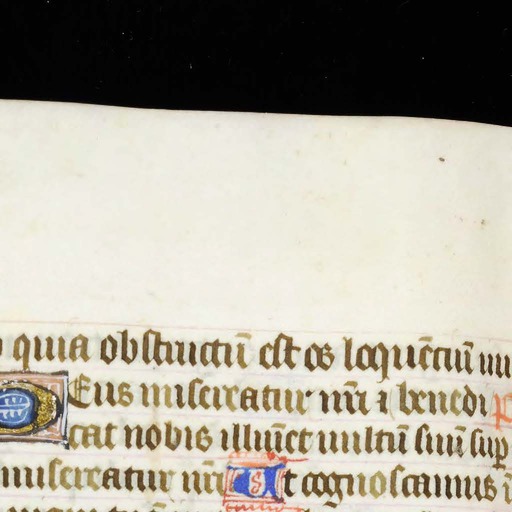 quia obstructū est os loquētiū
Deus misereatur nr̄i ⁊ benedi
cat nobis illuīet vultū suū sup̄
misereatur nr̄i Ut cognoscamus ī